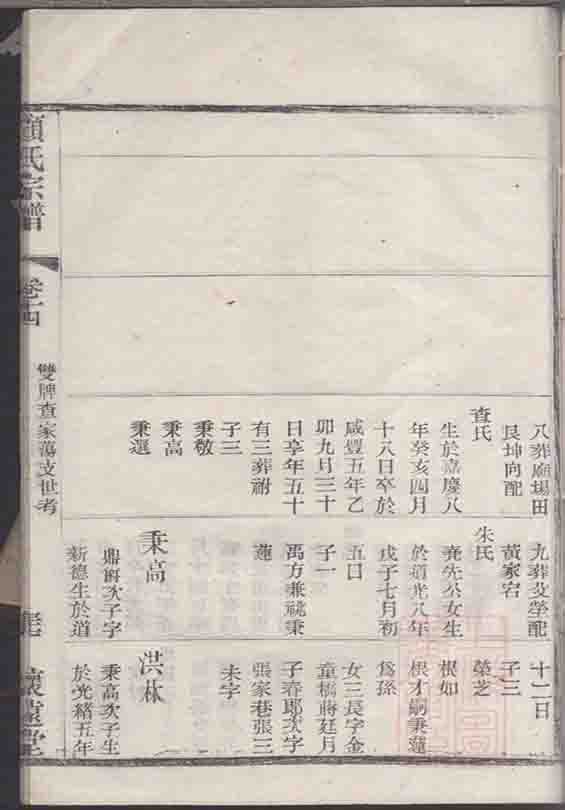 八葬廟場田
艮坤向配
查氏
生於嘉慶八
年癸亥四月
十八日卒於
咸豐五年乙
卯九月三十
日享年五十
有三葬祔
子三
秉敬
秉高
秉選
九葬父塋配
黃家宕
朱氏
堯先公女生
於道光八年
戊子七月初
五日
子一
萬方兼祧秉
蓮
秉高
鼎 次子字
新德生於道
十二日
子三
榮芝
根如
根才嗣秉蓮
爲孫
女三長字金
童橋蔣廷月
子春郎次字
張家巷張三
未字
洪林
秉高次子生
於光緒五年
顧氏宗譜
卷十四
雙牌查家蕩支世考
懷遠堂